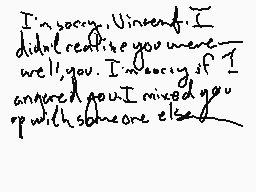 I'm sorry, Vincent. I
didn't realize you were
well, you. I'm sorry if I
angered you. I mixed you
up with someone else